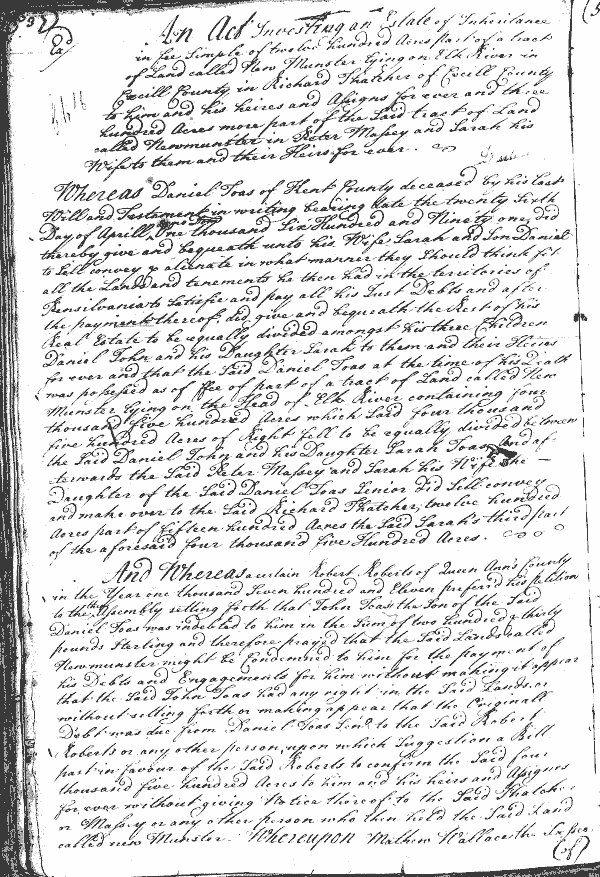 An Act Investing an Estate of Inheritance
in fee Simple of twelve hundred Acres part of a tract
of Land called New Munster lying on Elk River in
Cecill County in Richard Thatcher of Cecill County
to him and his heires and Assigns for ever and three
hundred Acres more part of the Said tract of Land
called Newmunster in Peter Massey and Sarah his
Wife to them and their Heirs for ever.
Whereas Daniel Toas of Kent County deceased by his last
Will and Testament in writing bearing date the twenty Sixth
Day of Aprill One thousand Six Hundred and Ninety one, did
thereby give and bequeath unto his Wife Sarah and Son Daniel
to Sell convey & alienate in what manner they Should think fit
all the Lands and tenements he then had in the territories of
Pensilvania to Satisfie and pay all his Just Debts and after
the payment thereof did give and bequeath the Rest of his
Real Estate to be equally divided amongst his three Children
Daniel John and his Daughter Sarah to them and their Heires
for ever and that the Said Daniel Toas at the time of his Death
was possessed as of ffee of part of a tract of Land called New
Munster lying on the Head of Elk River containing four
thousand five hundred Acres which Said four thousand
five hundred Acres of Right fell to be equally divided between
the Said Daniel John and his Daughter Sarah Toas And af
terwards the Said Peter Massey and Sarah his Wife the
Daughter of the Said Daniel Toas Senior did Sell convey
and make over to the Said Richard Thatcher, twelve hundred
Acres part of fifteen hundred Acres the Said Sarah's third part
of the aforesaid four thousand five Hundred Acres.
And Whereas a certain Robert Roberts of Queen Ann's County
in the Year one thousand Seven hundred and Eleven preferd his petition
to the Assembly setting forth that John Toas the Son of the Said
Daniel Toas was indebted to him in the Sum of two hundred & thirty
pounds Sterling and therefore prayed that the Said Lands called
Newmunster might be Condemned to him for the payment of
his Debts and Engagements for him without making it appear
that the Said John Toas had any right in the Said Lands or
without setting forth or making appear that the Originall
Debt was due from Daniel Toas Senr. to the Said Robert
Roberts or any other person, upon which Suggestion a Bill
past in favour of the Said Roberts to confirm the Said four
thousand five hundred Acres to him and his heirs and Assigns
for ever without giving Notice thereof to the Said Thatcher
or Massey or any other person who then held the Said Land
called new Munster. Whereupon Mathew Wallace the
(of)